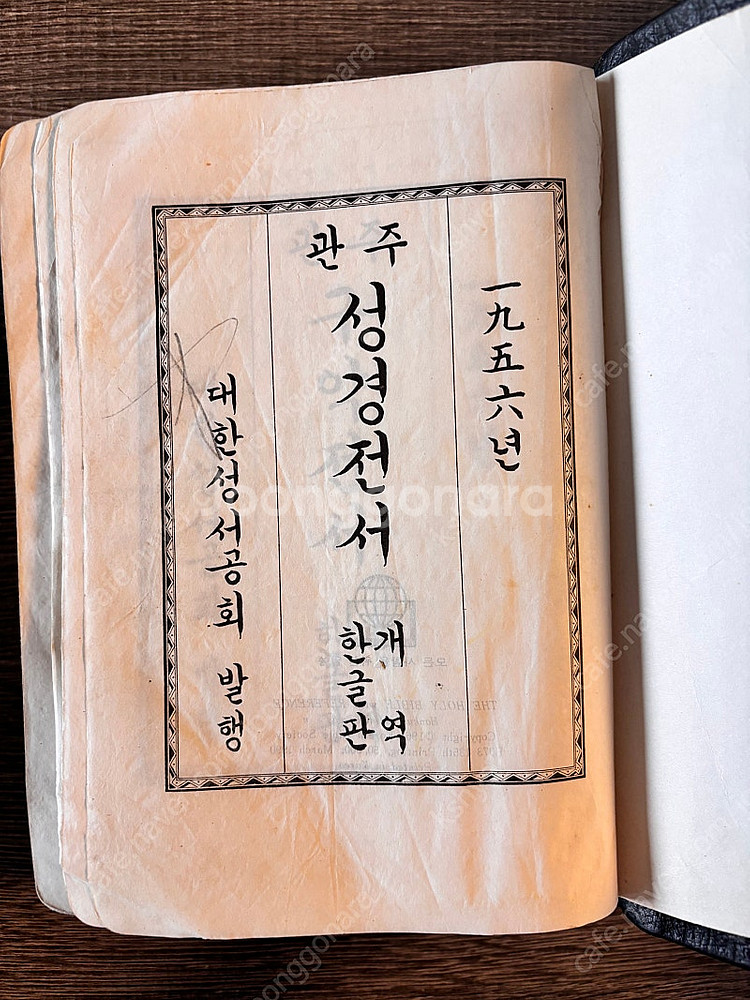 一九五六년
관주
성경전서
개역
한글판
대한성서공회 발행
joonggonara